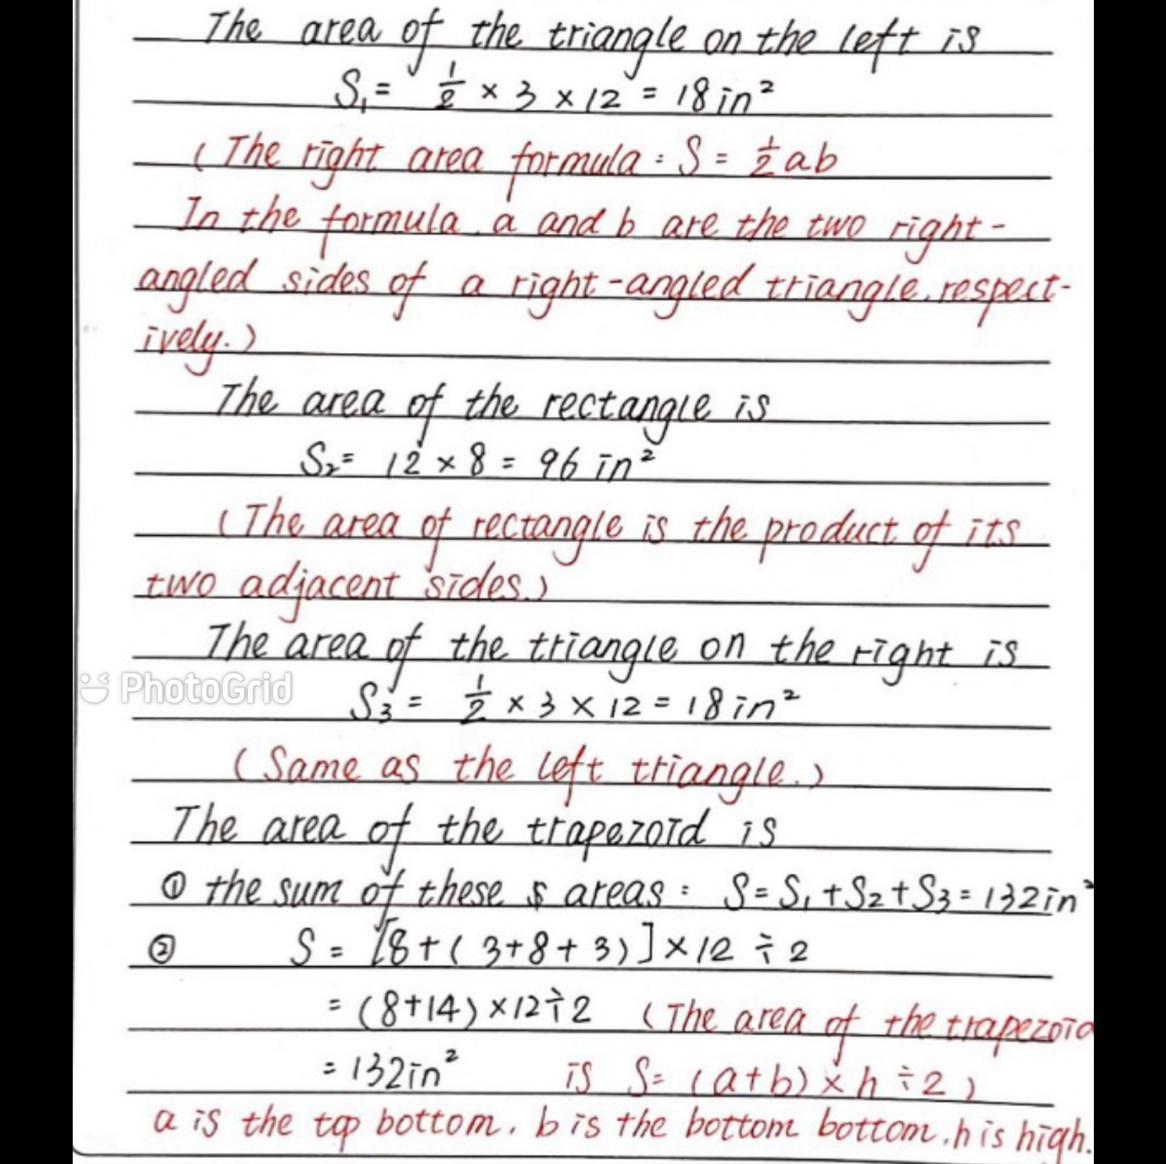 The area of the triangle on the left is
S₁ = ½ × 3 × 12 = 18 in²
(The right area formula: S = ½ ab
In the formula, a and b are the two right-
angled sides of a right-angled triangle, respect-
ively.)
The area of the rectangle is
S₂ = 12 × 8 = 96 in²
(The area of rectangle is the product of its
two adjacent sides.)
The area of the triangle on the right is
PhotoGrid
S₃ = ½ × 3 × 12 = 18 in²
(Same as the left triangle.)
The area of the trapezoid is
① the sum of these areas: S = S₁ + S₂ + S₃ = 132 in²
② S = [8 + (3 + 8 + 3)] × 12 ÷ 2
= (8 + 14) × 12 ÷ 2 (The area of the trapezoid
= 132 in² is S = (a + b) × h ÷ 2)
a is the top bottom, b is the bottom bottom, h is high.